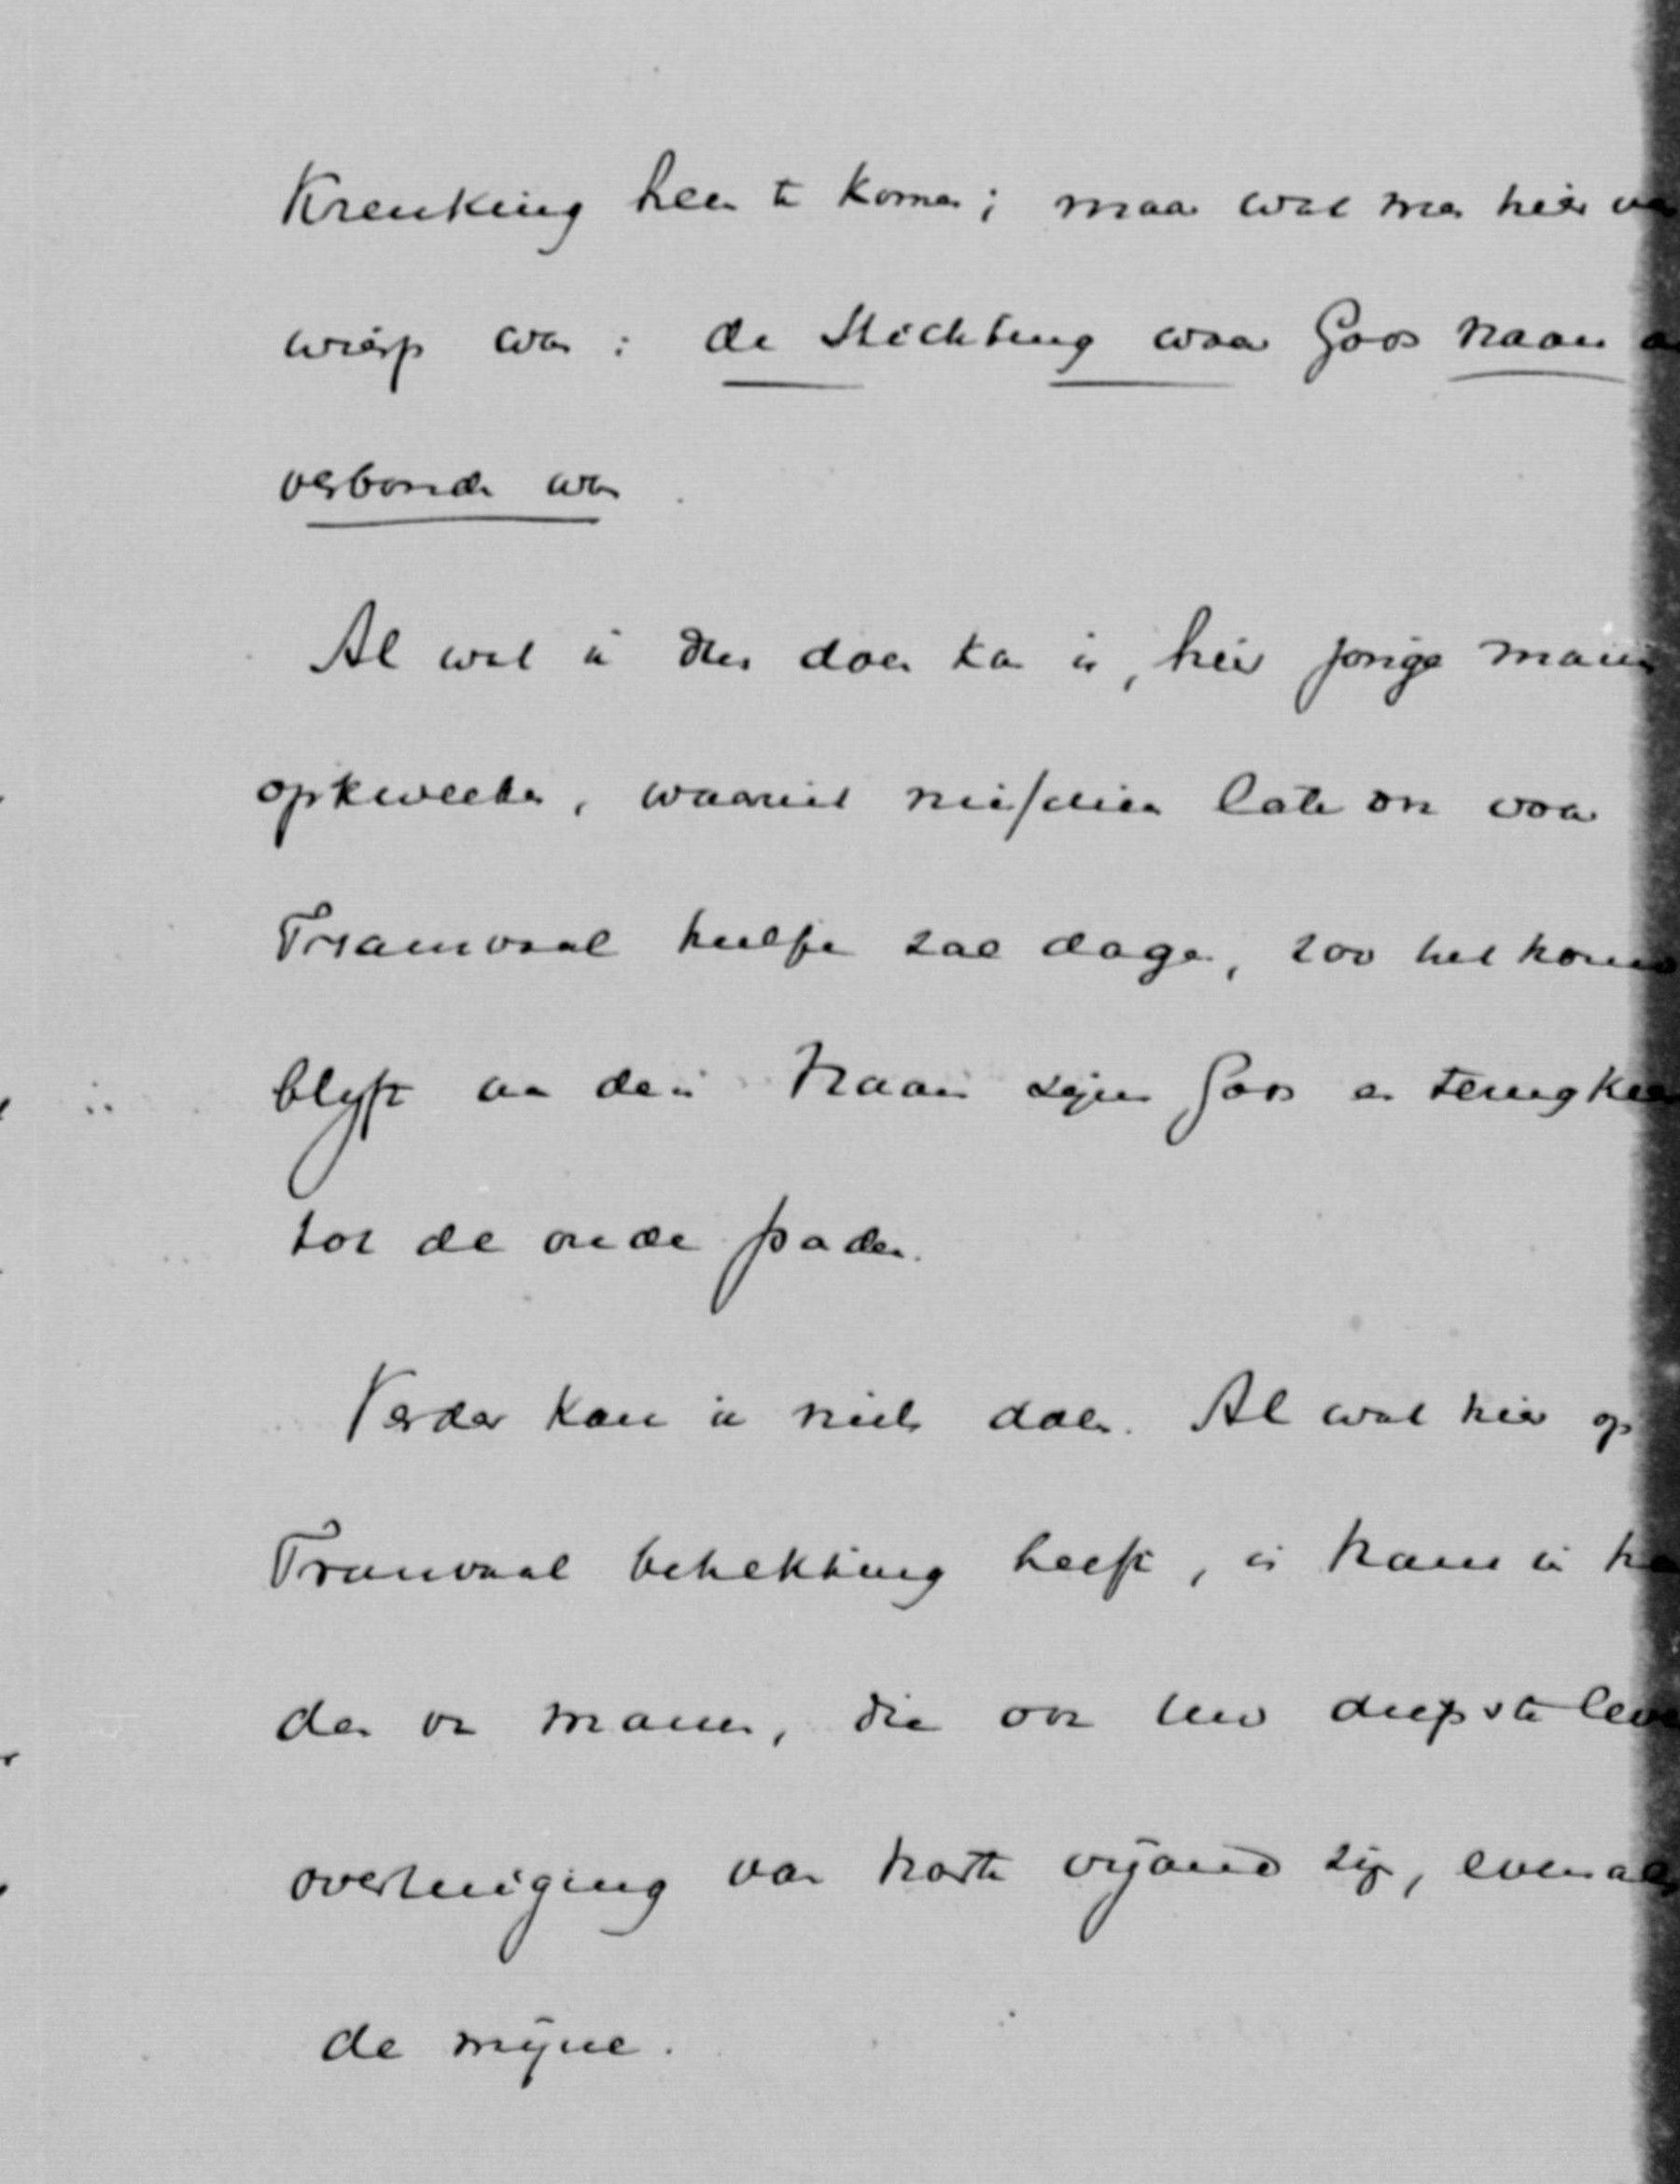 Krenking heen te komen; maar wat men hier
wierp was: de Stichting waar Gods naam
verbonden was.
Al wat ik dus doen kan is, hier jonge mannen
opkweeken, waaruit misschien later ook voor
Transvaal hulpe zal dagen, zoo het
blijft aan den naam zijn Gods en
tot de oude paden.
Verder kan ik niets doen. Al wat hier op
Transvaal betrekking heeft, is thans in
den van mannen, die van hun diepste
overtuiging van harte vijand zijn, evenals
de mijne.